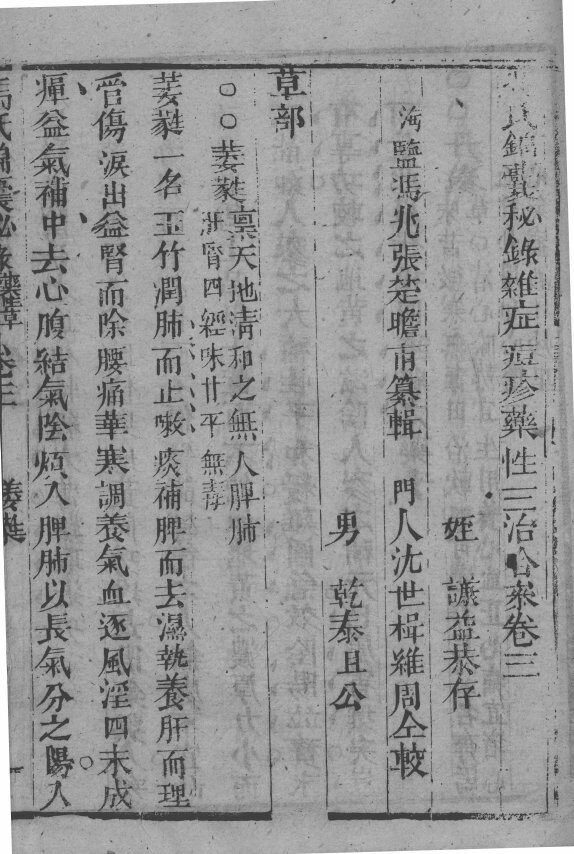 氏錦囊秘錄雜症痘疹藥性主治合參卷三
姪 謙益恭存
海鹽馮兆張楚瞻甫纂輯 門人沈世楫維周仝較
男 乾泰且公
草部
○○萎蕤稟天地清和之氣入脾肺
肝腎四經味甘平無毒
萎蕤一名玉竹潤肺而止嗽痰補脾而去濕熱養肝而理
眥傷淚出益腎而除腰痛莖寒調養氣血逐風淫四末成
痺益氣補中去心腹結氣陰煩入脾肺以長氣分之陽入
馮氏錦囊秘錄 卷三 萎蕤 一